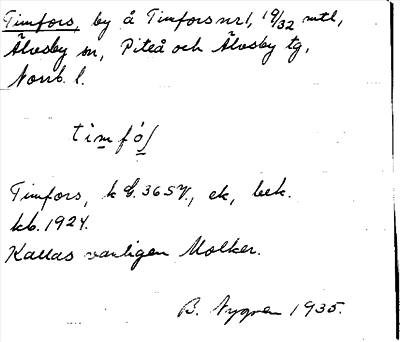 Timfors, by å Timfors nr 1, 19/32 mtl,
Älvsby sn, Piteå och Älvsby tg,
Norrb. l.
Timfors, k G. 36 SV., ek, bek.
kb. 1924.
Kallas vanligen Molker.
B. Nygren 1935.